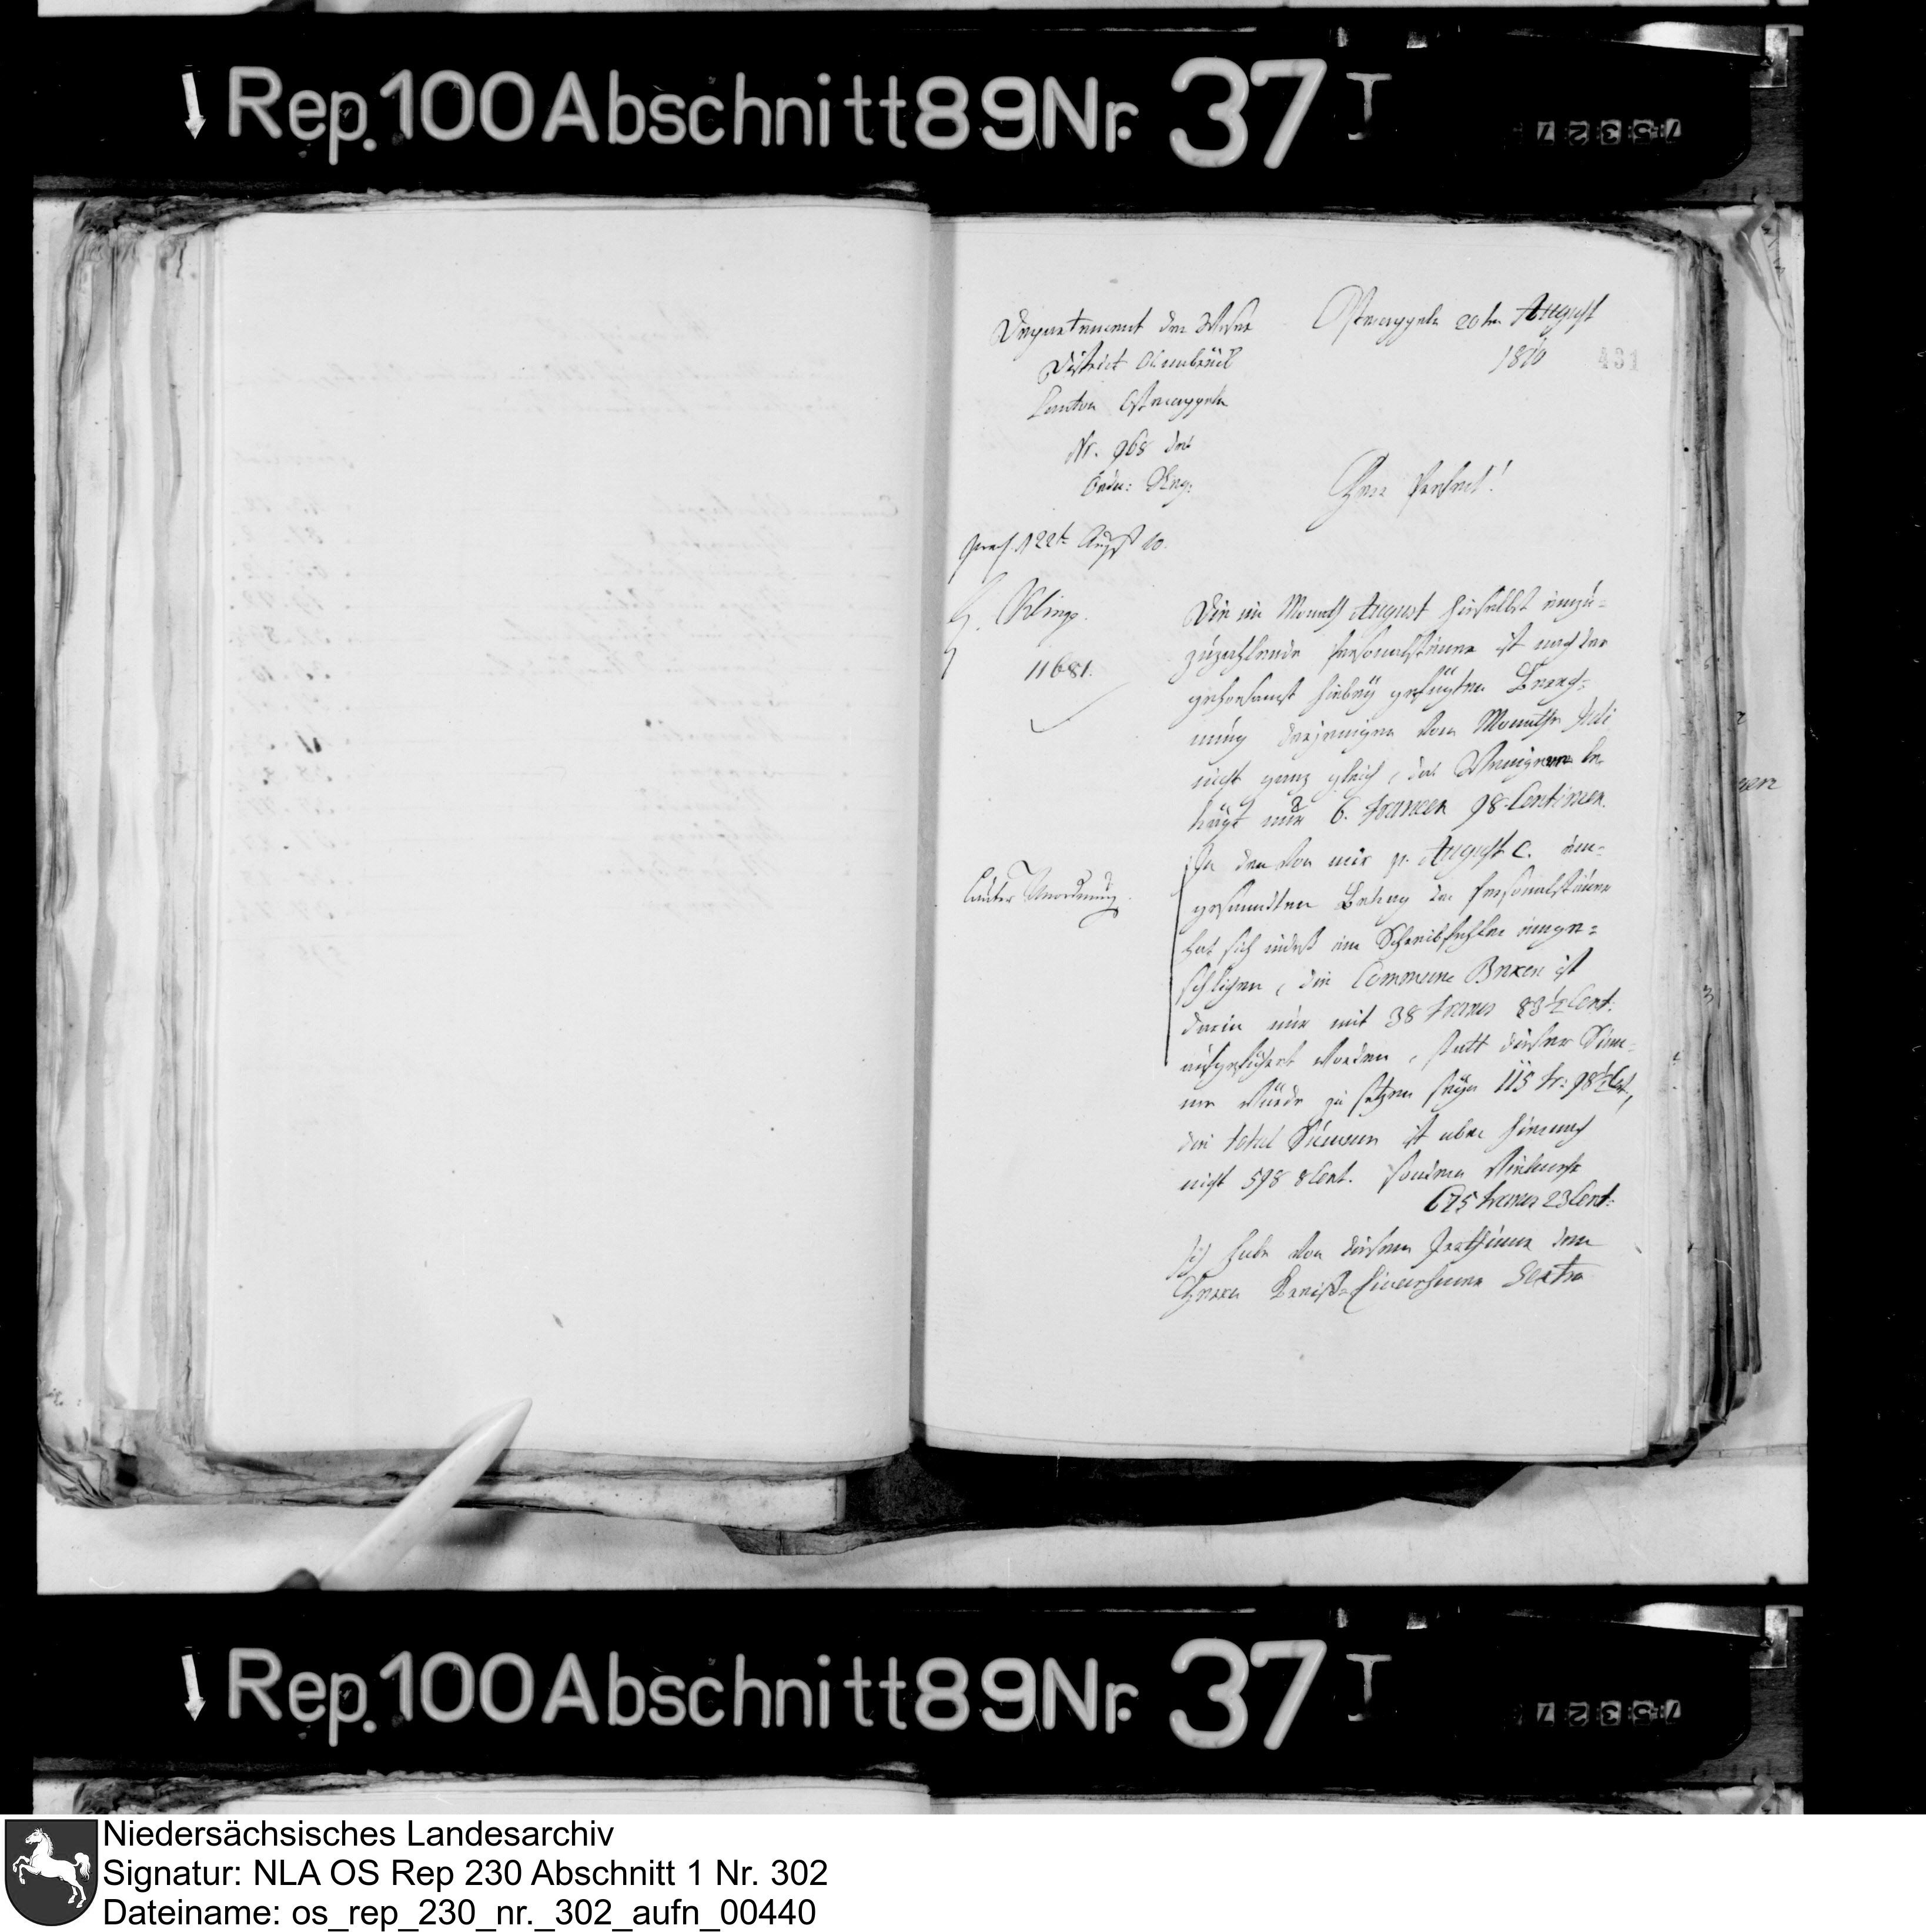 Rep. 100 Abschnitt 89 Nr. 37 I
Departement der Weser
District Osnabrück
Canton Ostercappeln
Nr. 968 des
Ostercappeln 20ten August
1810
431
Herr Präfect!
praes. d 22t Augst 10.
11681.
Die im Monath August hieselbst einzu-
zuzahlende Personalsteuer ist nach der
gehorsamst hiebey gefügten Berech-
nung derjenigen vom Monathe Juli
nicht ganz gleich, das Wenigere be-
trägt nur 6. Francen 98 Centimen.
In den von mir pr. August c. ein-
gesandten Betrag der Personalsteuer
hat sich indeß ein Schreibfehler einge-
schlichen, die Commune Buxen ist
darin nur mit 38 Francs 83½ Cent.
aufgeführt worden, statt dieser Sum-
me würde zu setzen seyn 115 Fr: 98½ Ct,
die total Summe ist aber hienach
nicht 598 8 Cent. sondern vielmehr
675 Francs 23 Cent.
Ich habe von diesem Irrthume dem
Herrn Kreiß-Einnehmer
Rep. 100 Abschnitt 89 Nr. 37 I
Niedersächsisches Landesarchiv
Signatur: NLA OS Rep 230 Abschnitt 1 Nr. 302
Dateiname: os_rep_230_nr._302_aufn_00440